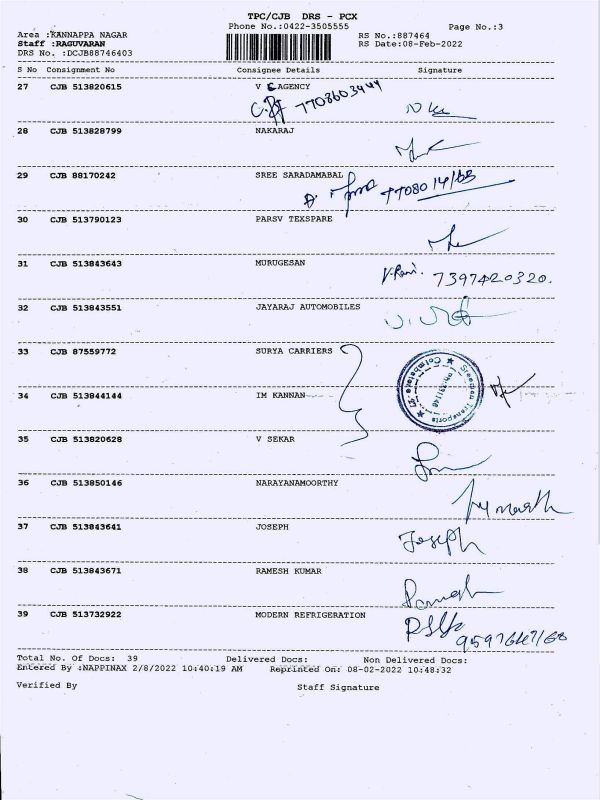 TPC/CJB DRS - PCX
Phone No.:0422-3505555
Page No.:3
Area :KANNAPPA NAGAR
RS No.:887464
Staff :RAGUVARAN
RS Date:08-Feb-2022
DRS No. :DCJB88746403
S No Consignment No Consignee Details Signature
27 CJB 513820615 V C AGENCY
7708603444
28 CJB 513828799 NAKARAJ
29 CJB 88170242 SREE SARADAMABAL
30 CJB 513790123 PARSV TEXSPARE
31 CJB 513843643 MURUGESAN
V. Rani. 7397420320.
32 CJB 513843551 JAYARAJ AUTOMOBILES
33 CJB 87559772 SURYA CARRIERS
Sreechem Transports
Coimbatore
34 CJB 513844144 IM KANNAN
35 CJB 513820628 V SEKAR
36 CJB 513850146 NARAYANAMOORTHY
37 CJB 513843641 JOSEPH
Joseph
38 CJB 513843671 RAMESH KUMAR
Ramesh
39 CJB 513732922 MODERN REFRIGERATION
Total No. Of Docs: 39 Delivered Docs: Non Delivered Docs:
Entered By :NAPPINAX 2/8/2022 10:40:19 AM Reprinted On: 08-02-2022 10:48:32
Verified By Staff Signature